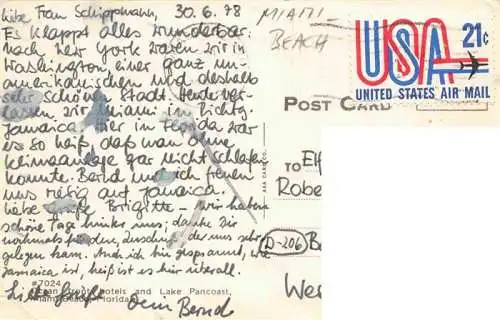 liebe Frau Schippmann, 30.6.78
Es klappt alles wunderbar.
Nach New York waren wir in
Washington einer ganz un-
amerikanischen und deshalb
sehr schönen Stadt. Heute ver-
lassen wir Miami in Richtg.
Jamaica. Hier in Florida war
es so heiß, daß man ohne
Klimaanlage gar nicht schlafen
konnte. Bernd und ich freuen
uns riesig auf Jamaica.
liebe Grüße Brigitte - Wir haben
schöne Tage hinter uns; danke Dir
nochmals für den, der uns sehr
gelegen kam. Auch ich bin gespannt, wie
Jamaica ist, heiß ist es hier überall.
Liebe Grüße Dein Bernd
#7024
Ocean front hotels and Lake Pancoast,
Miami Beach, Florida
MIAMI
BEACH
USA 21¢
UNITED STATES AIR MAIL
POST CARD
AAA CARD CO.
TO
Elf
Robe
D-206 Be
Wer